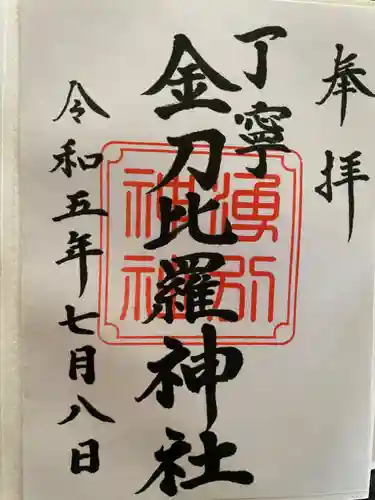 奉拝
丁寧
金刀比羅神社
湧別神社
令和五年七月八日